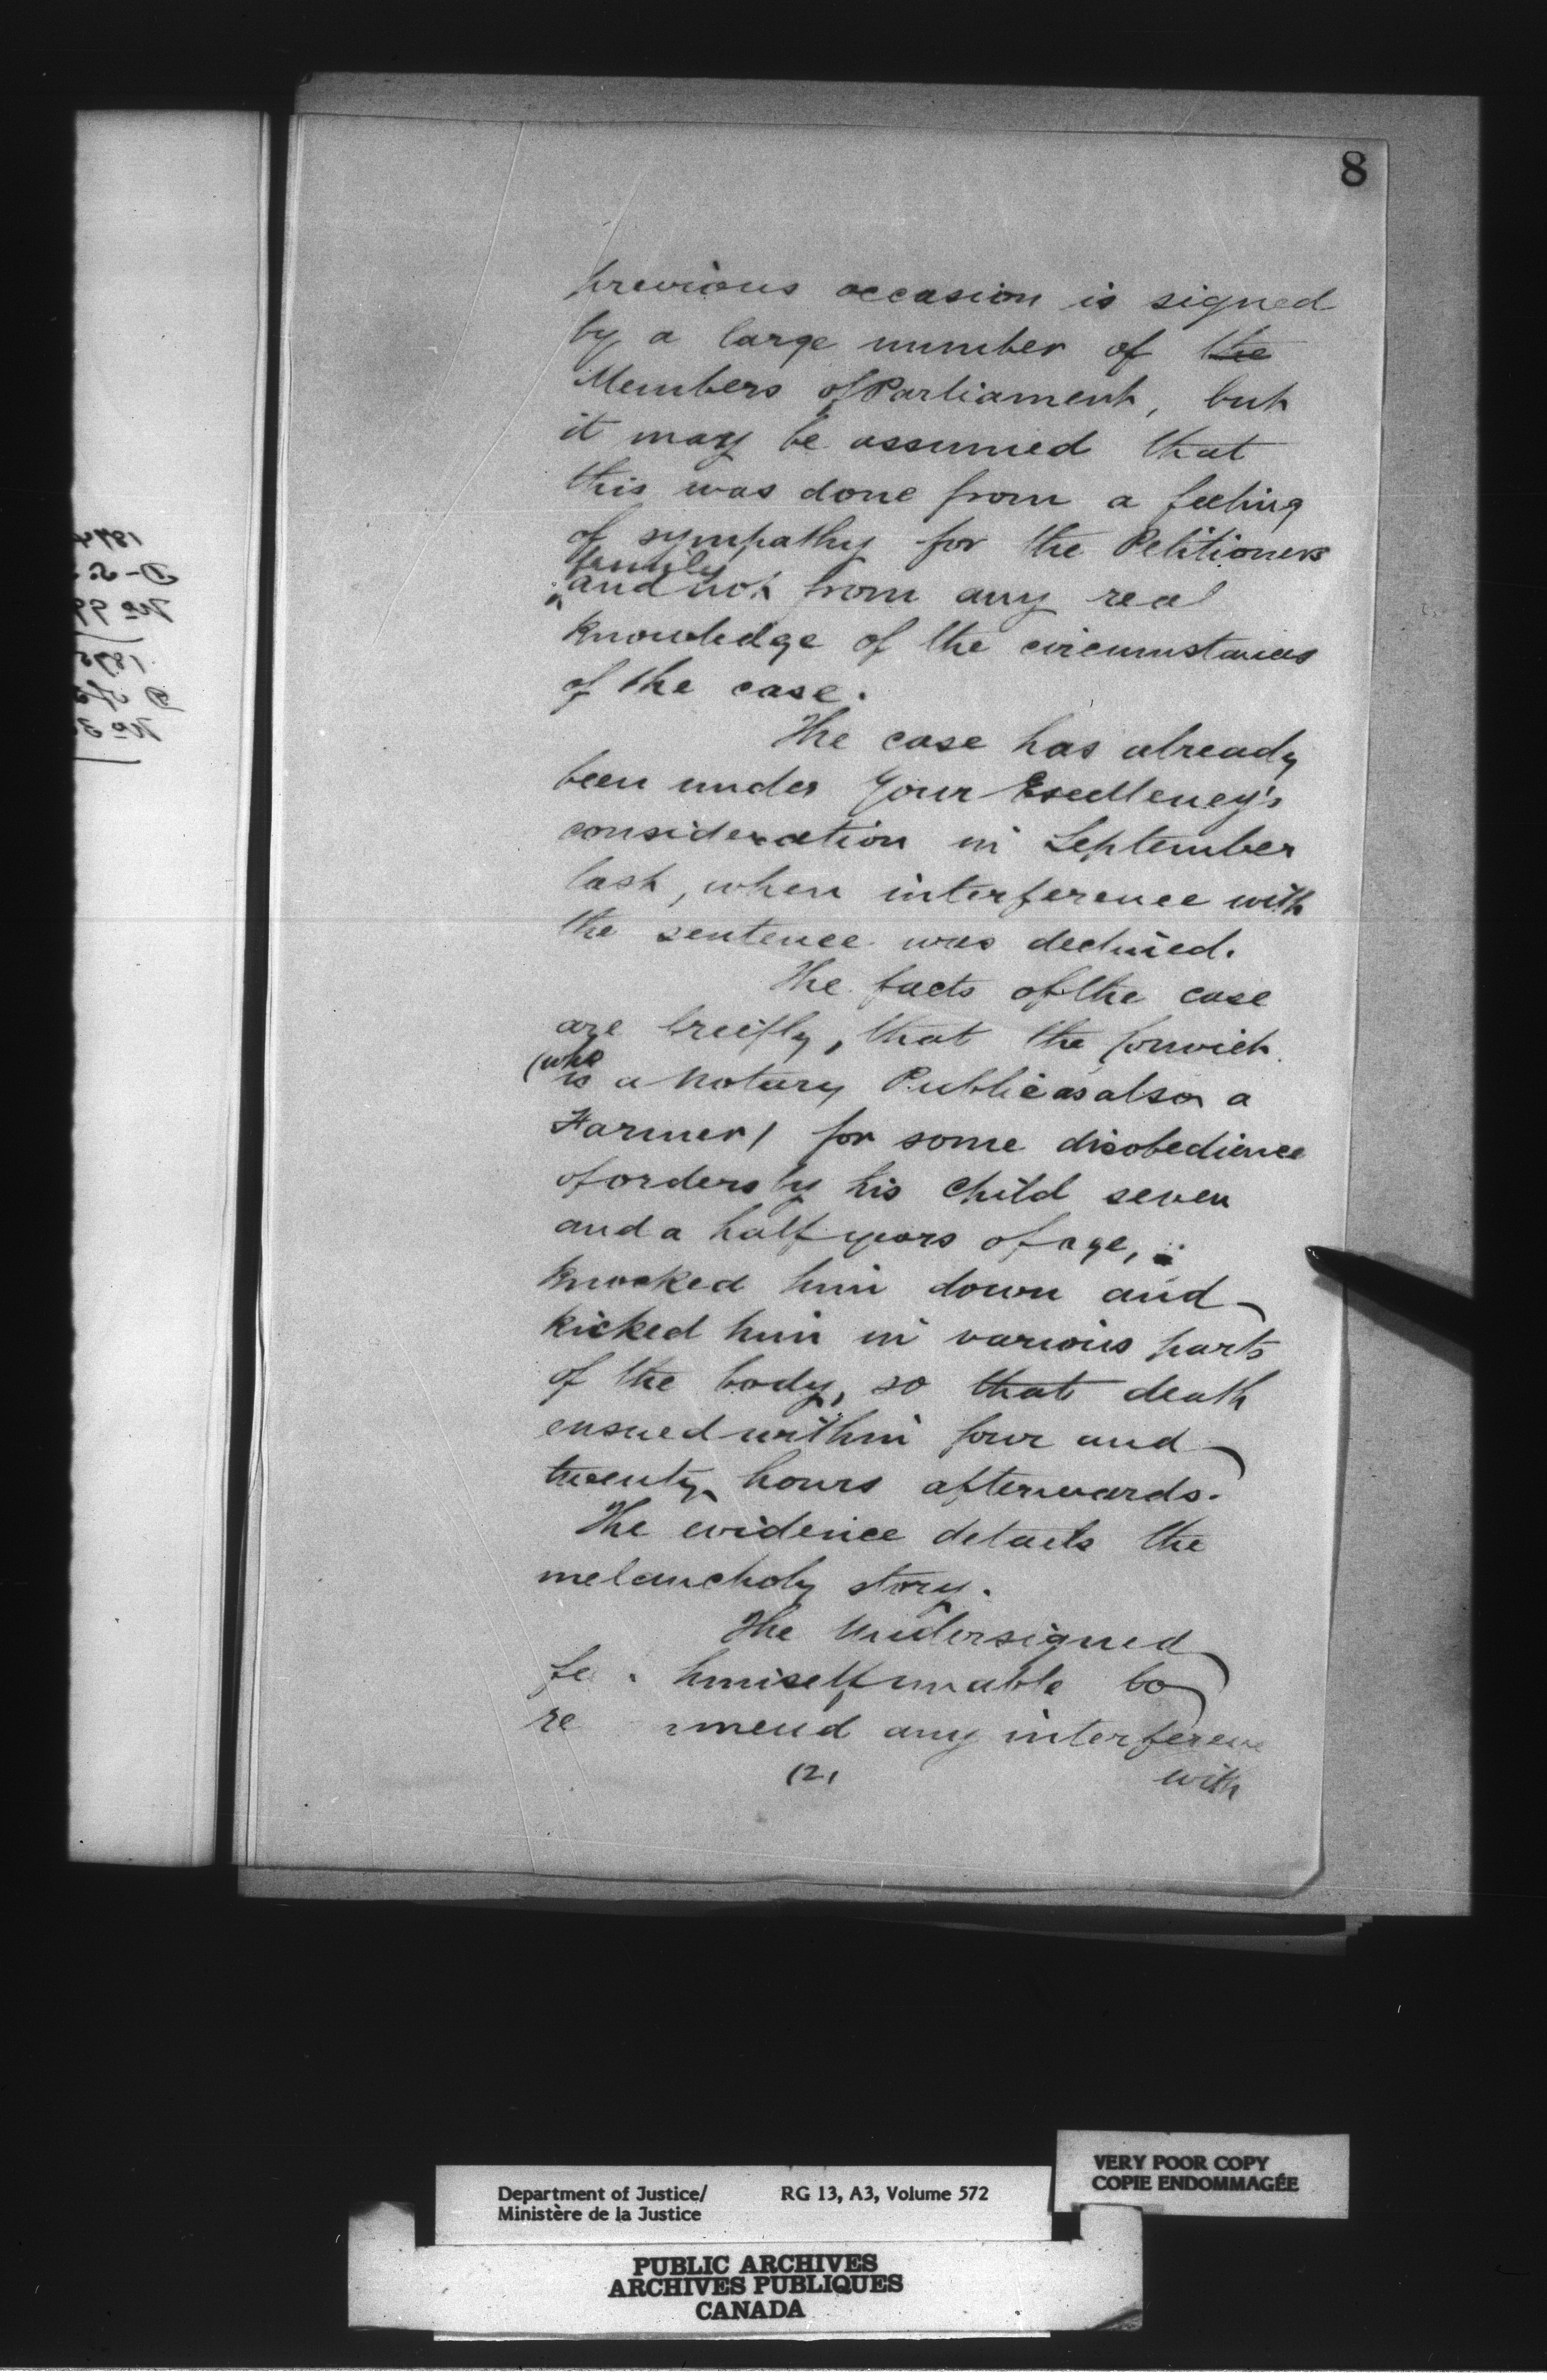 8
previous occasion is signed
by a large number of the
Members of Parliament, but
it may be assumed that
this was done from a feeling
of sympathy for the Petitioners
family
and not from any real
knowledge of the circumstances
of the case.
The case has already
been under Your Excellency's
consideration in September
last, when interference with
the sentence was declined.
The facts of the case
are breifly, that the Convict
(who
is a Notary Public as also a
Farmer) for some disobedience
of orders by his child seven
and a half years of age,
knocked him down and
kicked him in various parts
of the body, so that death
ensued within four and
twenty hours afterwards.
The evidence details the
melancholy story.
The Undersigned
fe himself unable to
re mend any interference
(2)
with
VERY POOR COPY
COPIE ENDOMMAGÉE
Department of Justice/ RG 13, A3, Volume 572
Ministère de la Justice
PUBLIC ARCHIVES
ARCHIVES PUBLIQUES
CANADA